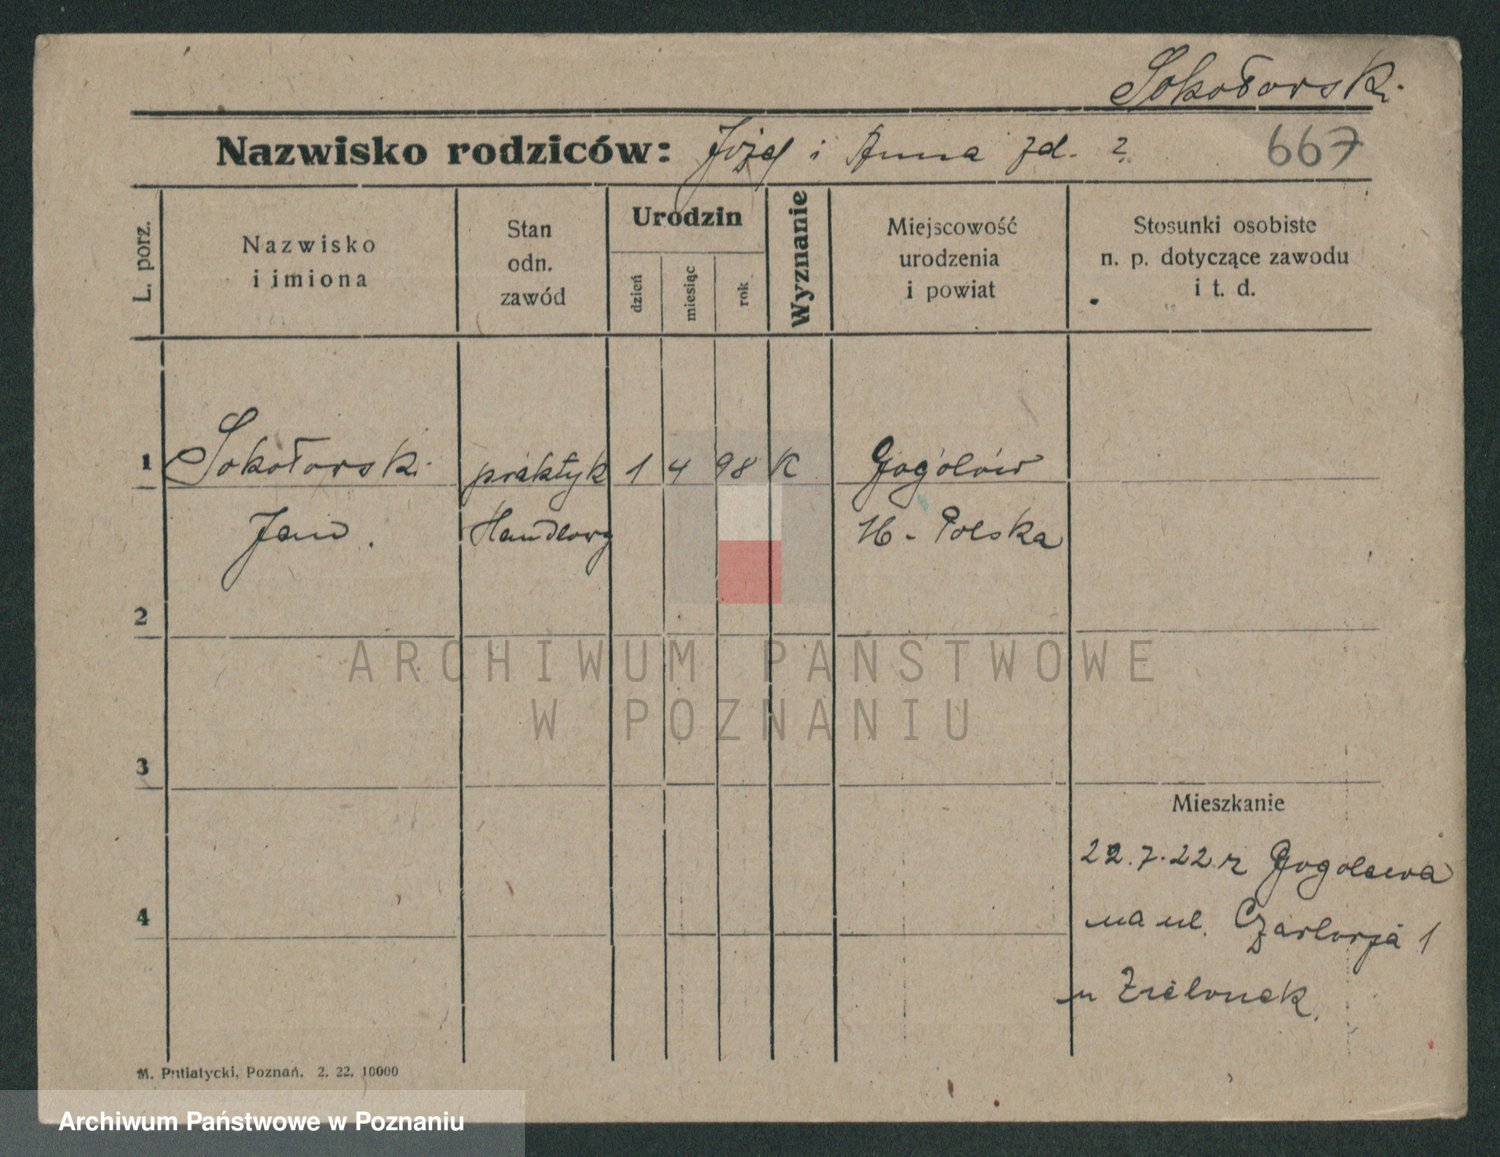 Sokołorski
Nazwisko rodziców: Józef i Anna zd. ?
667
L. porz.
Nazwisko
i imiona
Stan
odn.
zawód
Urodzin
dzień
miesiąc
rok
Wyznanie
Miejscowość
urodzenia
i powiat
Stosunki osobiste
n. p. dotyczące zawodu
i t. d.
1 Sokołorski praktyk 1 4 98 K Gogolów
Jan. Handlowy Polska
2
ARCHIWUM PAŃSTWOWE
W POZNANIU
3
Mieszkanie
22.7.22 r Gogolewa
4
na ul. 1
u
M. Putiatycki, Poznań. 2. 22. 10000
Archiwum Państwowe w Poznaniu